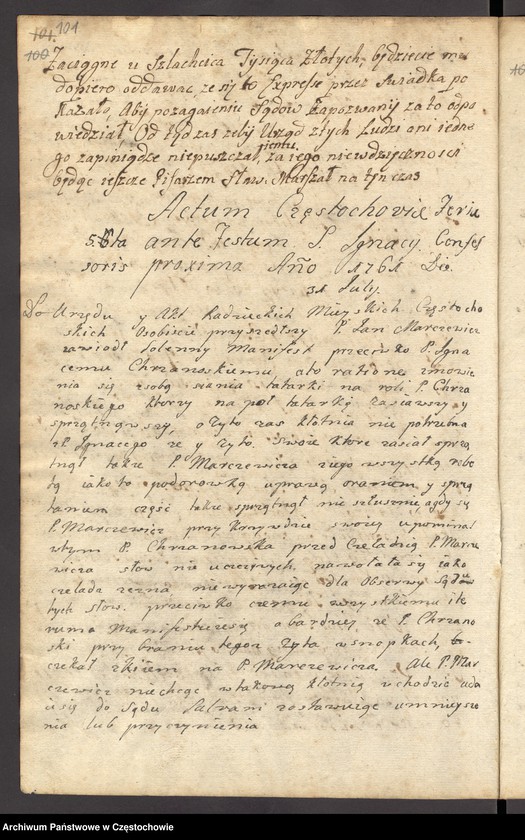 101. 101
100
Zaciągne u Szlachcica Tysiąca Złotych, będziecie mu
dopiero oddawac ze się to Expresse przez Swiadka po
Kazało, Aby po zagaieniu Sądow Zapozwanij za to odpo
wiedział Od tąd zas zeby Urząd złych Ludzi oni iedne
go zapiniądze niepuszczał, za iego niewdzięcznosci
będąc ieszcze Pisarzem Sław. Marszał na tyn czas
Actum Częstochoviæ Feria
5. ta ante Festum S. Ignacy Confes
soris proxima Año 1761 Die
31 July.
Do Urzędu y Akt Radzieckich Mieyskich Częstocho
skich Osobiscie przyszedłszy P. Jan Marczewicz
zawiodł Solenny Manifest przeciwko P. Igna
cemu Chrzanoskiemu, a to ratione zmowie
nia się z sobą siania tatarki na roli P. Chrza
noskiego ktorzy na poł tatarkę zasiawszy y
sprzątnąwszy, o Zyto zas kłotnia nie potrzebna
P. Ignacego ze y Zyto. Swoie ktore zasiał sprzą
tnął także P. Marczewicza iego wszystką robo
tę iako to podorowką uprawą oraniem y sprzą
taniem częsc także sprzątnął nie słusznie, a gdy się
P. Marczewicz przy krzywdzie swoiey upominał
w tym P. Chrzanowska przed Czeladnią P. Marcze
wicza słow nie uczciwych nawołała się iako
czelada zezna niewyrazaiąc dla Obserwy Sądu
tych słow. przeciwko czemu wszystkiemu ite
rum Manifestuie się a bardziey ze P. Chrzano
ski przy braniu tegoz Zyta w snopkach,
czekał z kiiem na P. Marczewicza. Ale P. Mar
czewicz niechcąc w takową kłotnią wchodzic uda
ie się do Sądu Salvam zostawuiąc umnieysze
nia lub przyczynienia
Archiwum Państwowe w Częstochowie